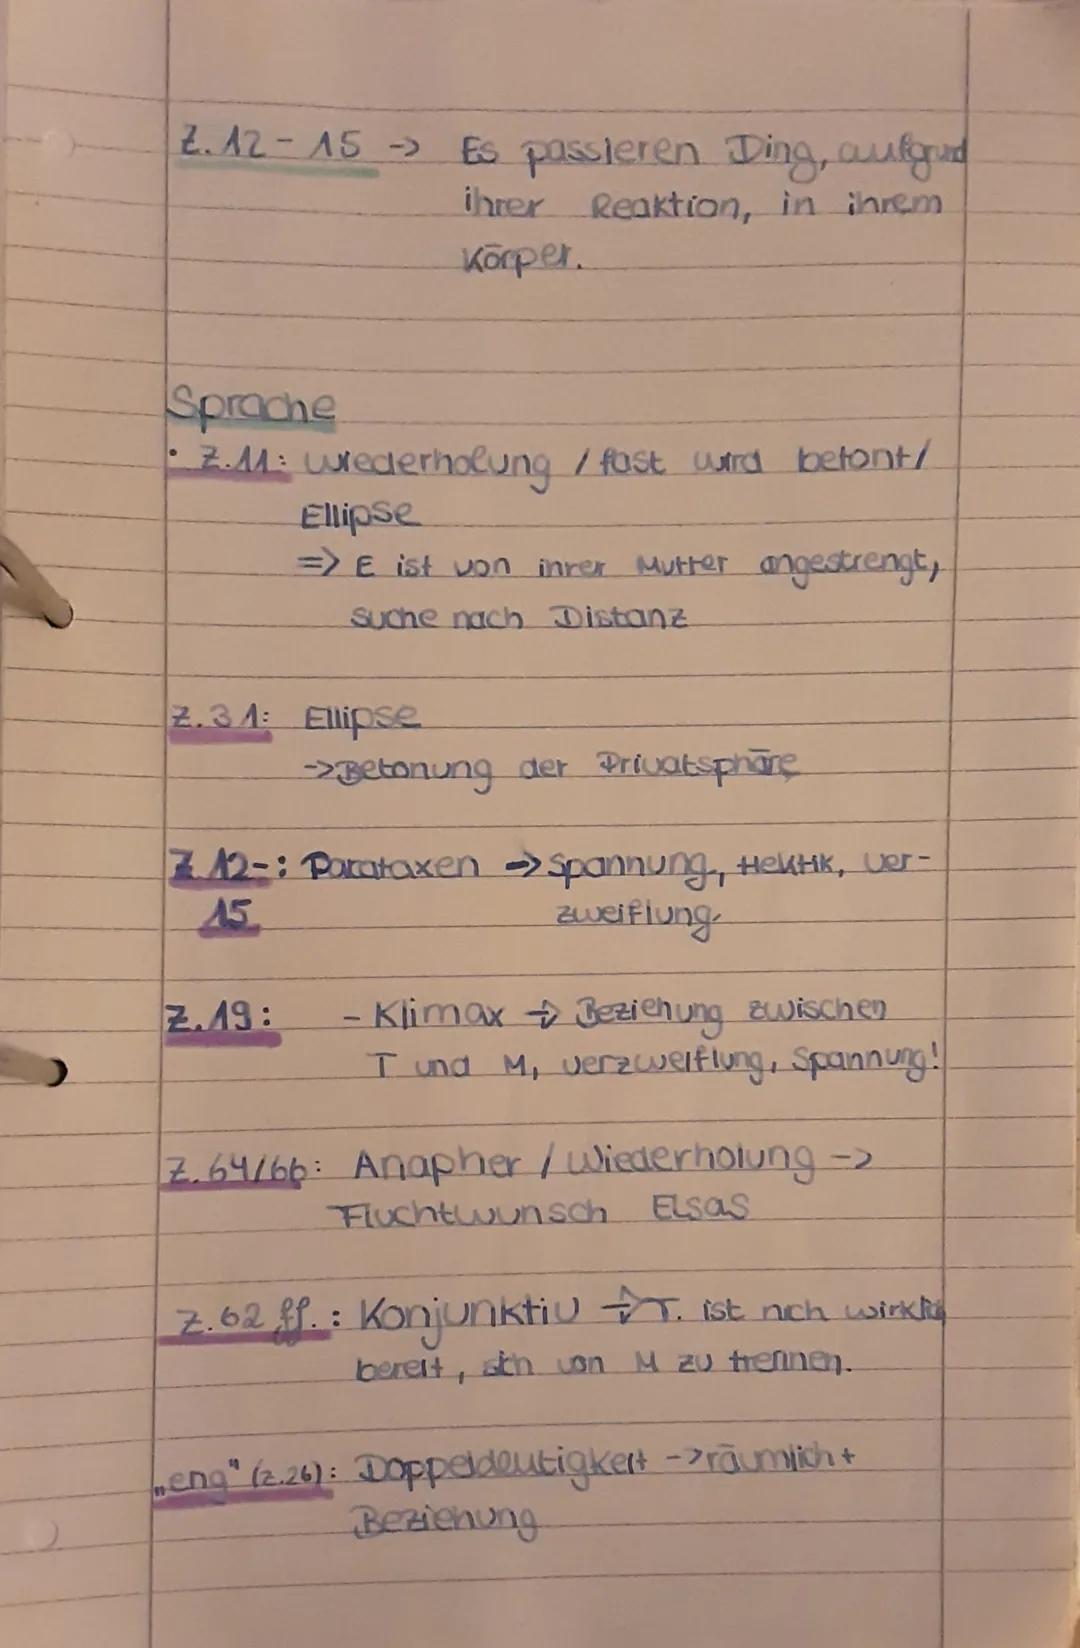 Z. 12 - 15 -> Es passieren Ding, aufgrund
ihrer Reaktion, in ihrem
Körper.
Sprache
• Z.11: Wiederholung / fast wird betont/
Ellipse
=> E ist von ihrer Mutter angestrengt,
suche nach Distanz
Z.31: Ellipse
->Betonung der Privatsphäre
Z 12-: Parataxen -> Spannung, Hektik, Ver-
15 zweiflung
Z.19: - Klimax -> Beziehung zwischen
T und M, Verzweiflung, Spannung!
Z.64/66: Anapher / Wiederholung ->
Fluchtwunsch Elsas
Z.62 ff.: Konjunktiv -> T. ist nich wirklich
bereit, sich von M zu trennen.
„eng" (Z.26): Doppeldeutigkeit -> räumlich +
Beziehung